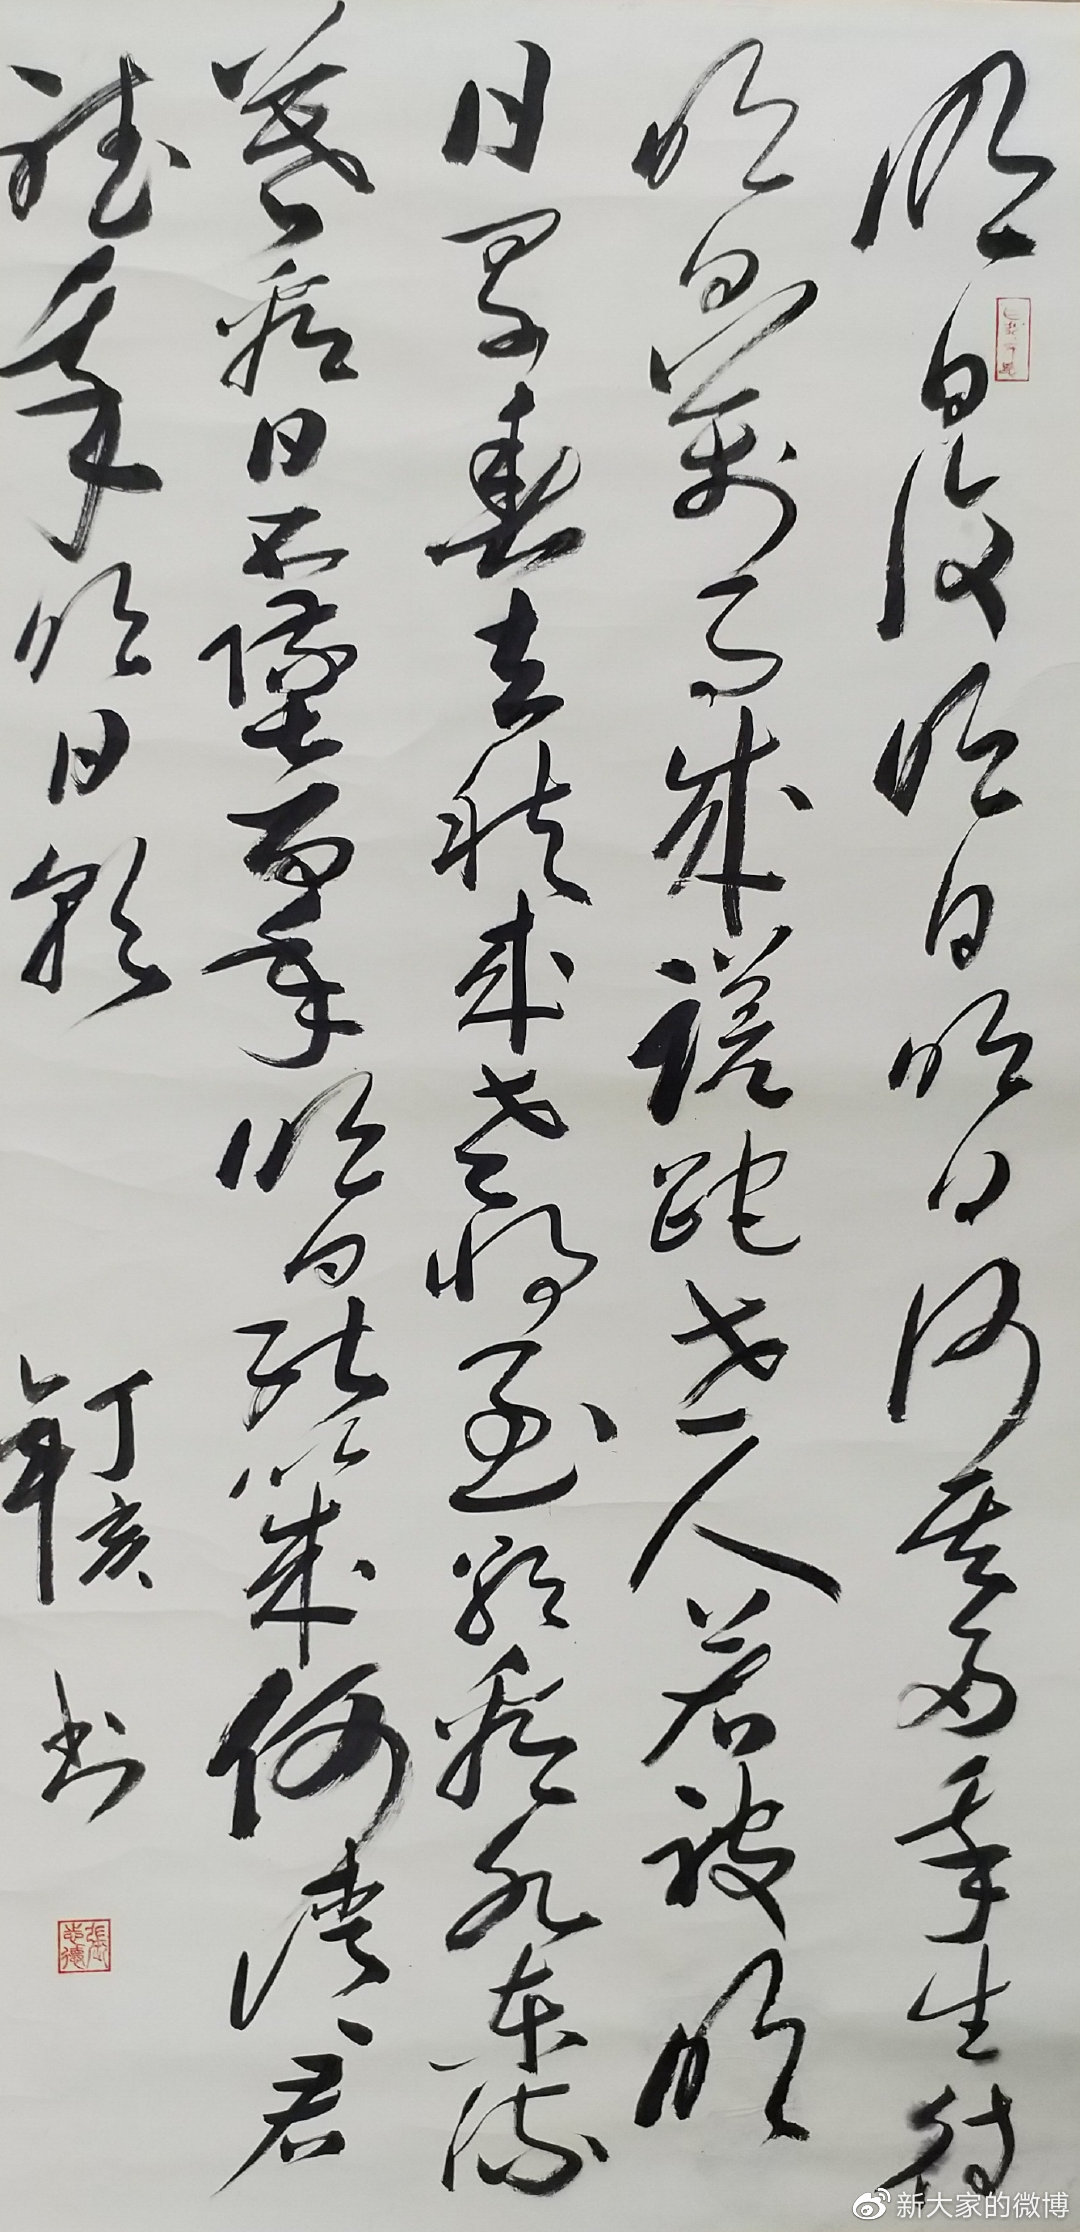 明日復明日明日何其多我生待
明日萬事成蹉跎世人若被明
日累春去秋来老將至朝看水东流
暮看日西墜百年明日能幾何請君
聽我明日歌
丁亥
年 书
張志德
新大家的微博